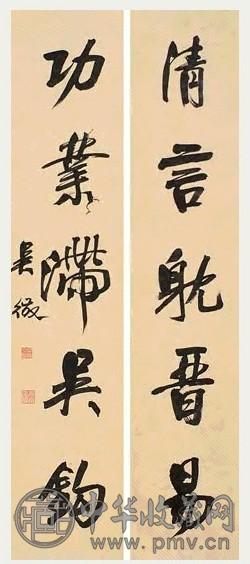 清言躭晋易
功業滯吴鈎
吴徵
中华收藏网
www.pmv.cn